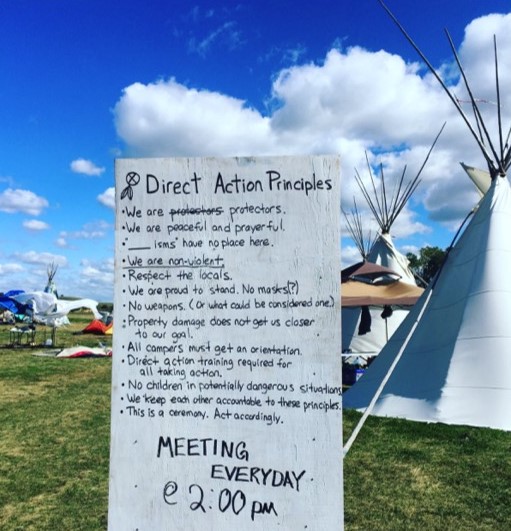 Direct Action Principles
• We are protectors.
• We are peaceful and prayerful.
• "___ isms" have no place here.
• We are non-violent.
• Respect the locals.
• We are proud to stand. No masks(?)
• No weapons. (or what could be considered one.)
• Property damage does not get us closer
to our goal.
• All campers must get an orientation.
• Direct action training required for
all taking action.
• No children in potentially dangerous situations
• We keep each other accountable to these principles.
• This is a ceremony. Act accordingly.
MEETING
EVERYDAY
@ 2:00 pm